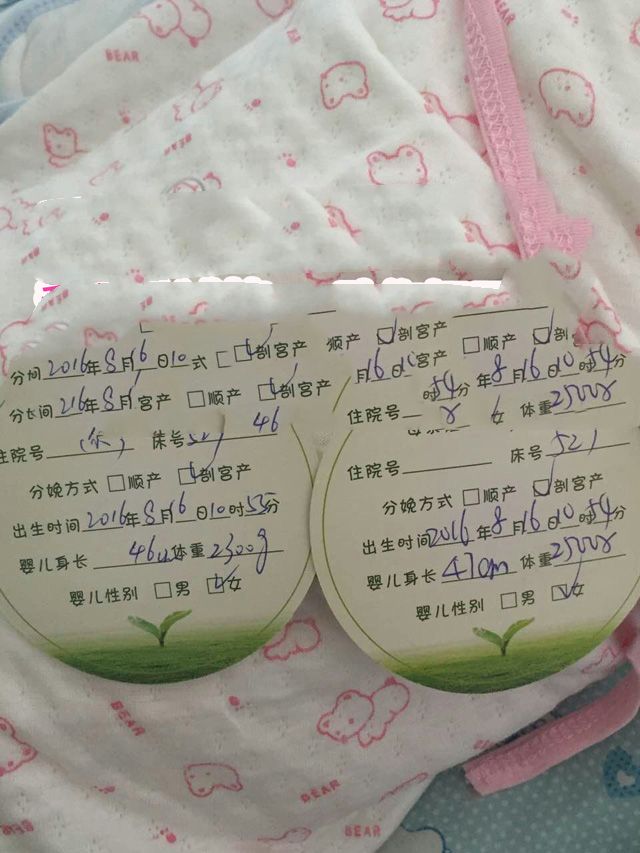 BEAR
BEAR
分间2016年8月16日10 式 剖宫产
顺产 剖宫产
顺产 剖宫产
分长间216年8月 宫产 顺产 剖宫产
月16日 宫产
年8月16日10时54分
住院号 床号 46
住院号 女 体重2500g
分娩方式 顺产 剖宫产
出生时间2016年8月16日10时55分
婴儿身长 46cm体重2300g
婴儿性别 男 女
住院号 床号521
分娩方式 顺产 剖宫产
出生时间2016年8月16日10时54分
婴儿身长47cm 体重2500g
婴儿性别 男 女
BEAR
BEAR
BEAR